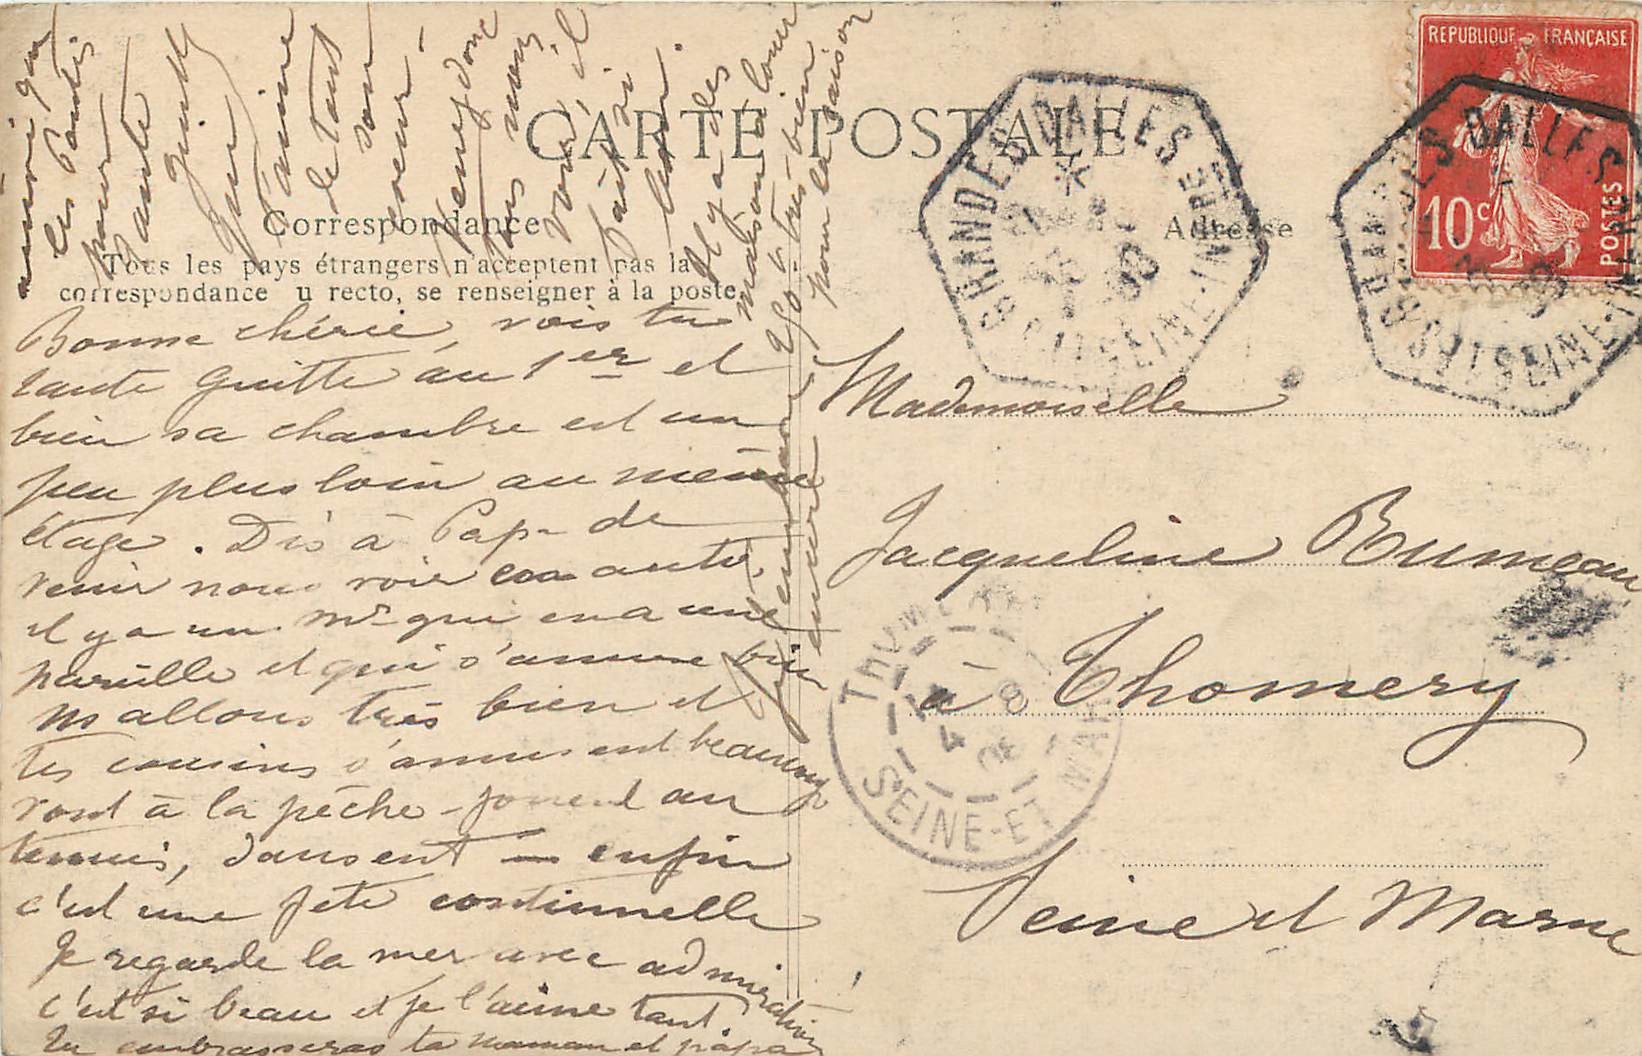 CARTE POSTALE
Correspondance
Adresse
Tous les pays étrangers n'acceptent pas la
correspondance u recto, se renseigner à la poste.
RÉPUBLIQUE FRANÇAISE
10c
POSTES
GRANDES DALLES
SEINE-INFRE
GRANDES DALLES
SEINE-INFRE
THOMERY
4
08
SEINE-ET-MAR
Bonne chérie, vois tu
tante quitte au 1er et
bien sa chambre est un
peu plus loin au même
étage. Dis à Papa de
venir nous voir en auto,
il y a un mr qui en a une
pareille et qui s'amuse bien
ns allons très bien et
tes cousins s'amusent beaucoup
vont à la pêche jouent au
tennis, dansent — enfin
c'est une fête continuelle
Je regarde la mer avec admiration
c'est si beau et je l'aime tant !
Tu embrasseras ta maman et papa
ainsi que
les
pour
tante
que
j'aime
de tout
mon
cœur —
Venez donc
nous
voir, il
fait si
bon.
Il y a des
maisons à louer
250 très bien
pour la saison
encore
Mademoiselle
Jacqueline Bumeau
à Thomery
Seine et Marne